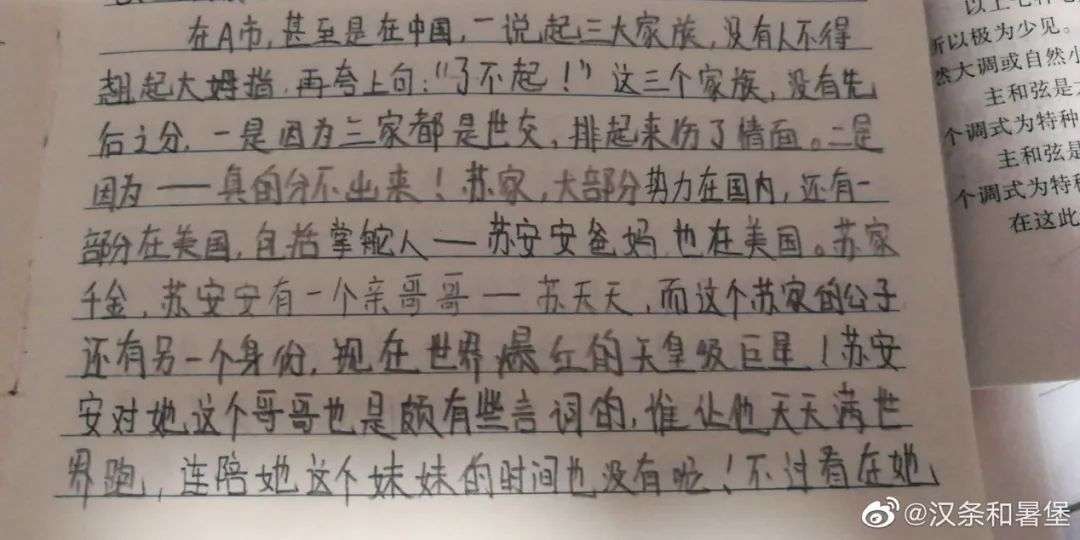 在A市,甚至是在中国,一说起三大家族,没有人不得
翘起大拇指,再夸上句:“了不起!”这三个家族,没有先
后之分,一是因为三家都是世交,排起来伤了情面。二是
因为——真的分不出来!苏家,大部分势力在国内,还有一
部分在美国,包括掌舵人——苏安安爸妈,也在美国。苏家
千金,苏安安有一个亲哥哥——苏天天,而这个苏家的公子
还有另一个身份,现在世界爆红的天皇级巨星!苏安
安对她这个哥哥也是颇有些言词的,谁让他天天满世
界跑,连陪她这个妹妹的时间也没有呢!不过看在她
以上七种
所以极为少见。
然大调或自然小
主和弦是
个调式为特种
主和弦是
个调式为特种
在这此
@汉条和暑堡